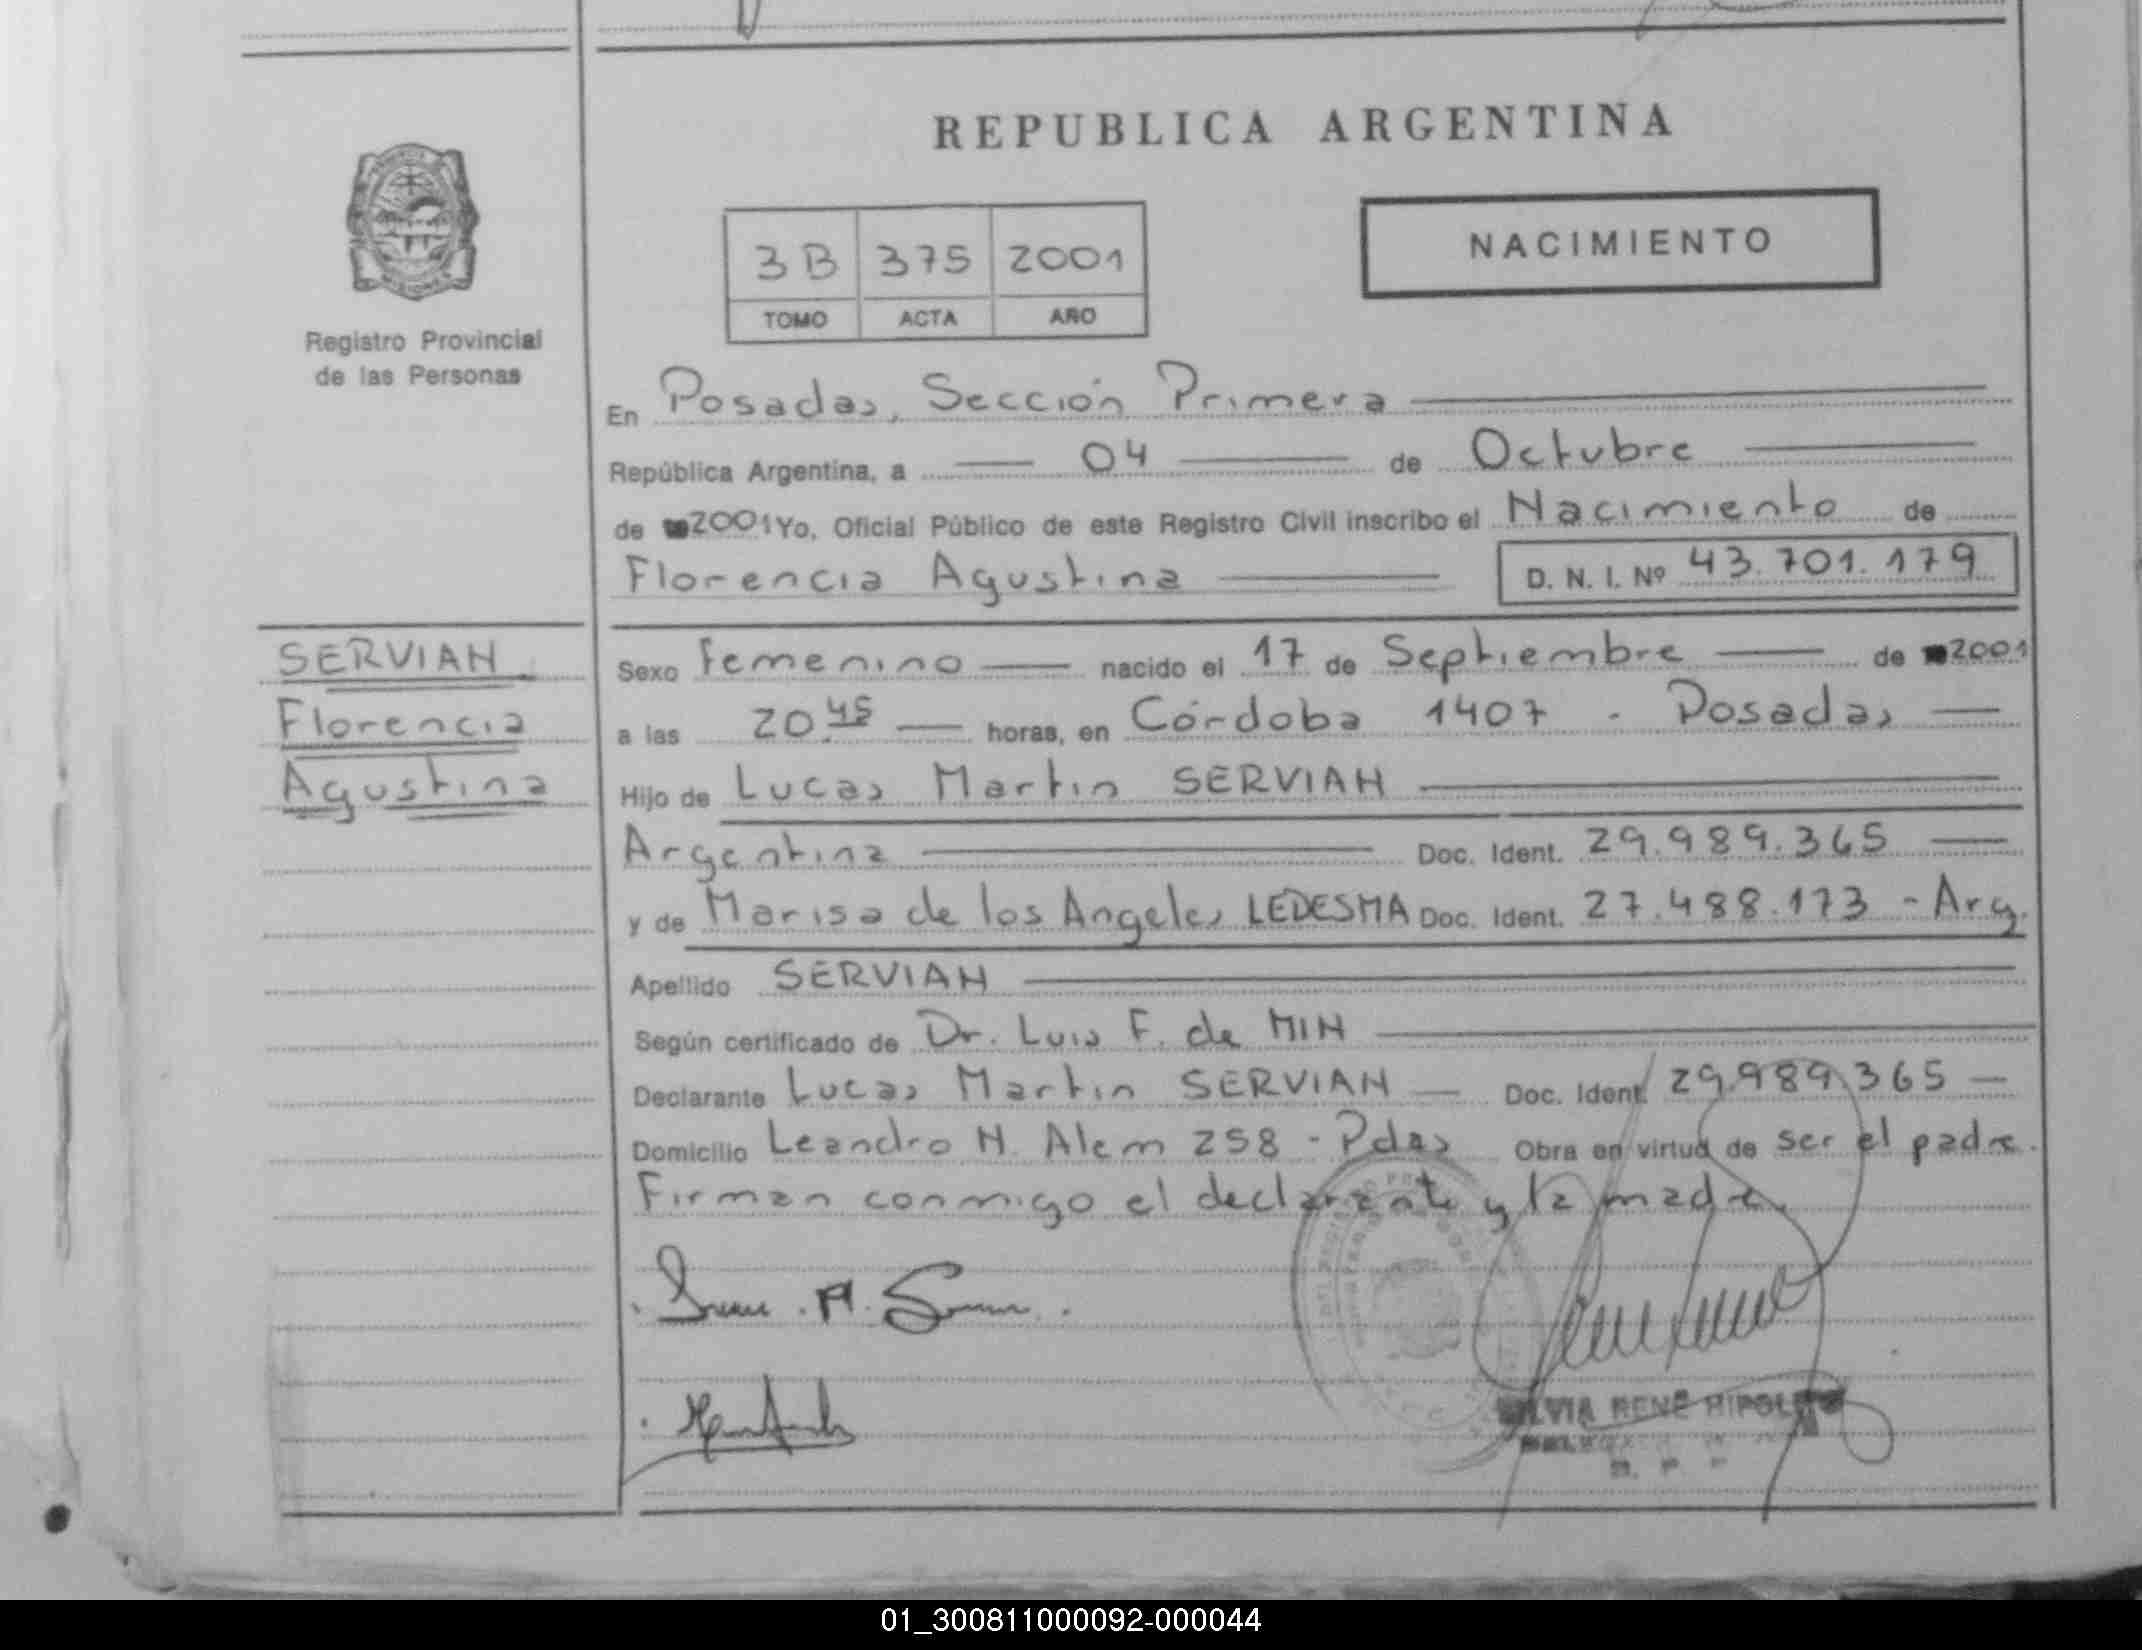 REPUBLICA ARGENTINA
3B 375 2001
TOMO ACTA AÑO
NACIMIENTO
Registro Provincial
de las Personas
En Posadas, Sección Primera
República Argentina, a 04 de Octubre
de 2001 Yo, Oficial Público de este Registro Civil inscribo el Nacimiento de
Florencia Agustina D. N. I. Nº 43.701.179
SERVIAN
Florencia
Agustina
Sexo Femenino nacido el 17 de Septiembre de 2001
a las 20.45 horas, en Córdoba 1407 - Posadas
Hijo de Lucas Martin SERVIAN
Argentina Doc. Ident. 29.989.365
y de Marisa de los Angeles LEDESMA Doc. Ident. 27.488.173 - Arg.
Apellido SERVIAN
Según certificado de Dr. Luis F. de MIN
Declarante Lucas Martin SERVIAN Doc. Ident. 29.989.365
Domicilio Leandro N. Alem 258 - Pdas Obra en virtud de ser el padre.
Firman conmigo el declarante y la madre.
SILVIA RENÉ HIPOLITO
01_300811000092-000044